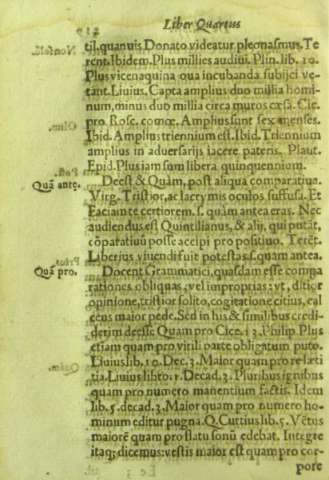 Liber Quartus
til, quanuis Donato videatur pleonasmus. Te
rent. Ibidem. Plus millies audiui. Plin. lib. 19.
Plus vicenaquina qua incubanda subijci ve-
tant. Liuius. Capta amplius duo millia homi-
num, minus duo millia circa muros cæsa. Cic.
pro. Rosc. comœ. Amplius sunt sex menses.
Ibid. Amplius triennium est. Ibid. Triennium
amplius in aduersarijs iacere pateris. Plaut.
Epid. Plus iam sum libera quinquennium.
Quã ante. Deest & Quàm, post aliqua comparatiua.
Virg. Tristior, ac lacrymis oculos suffusa. Et
Faciam te certiorem. s. quàm antea eras. Nec
audiendus est Quintilianus, & alij, qui putãt,
cõparatiuũ posse accipi pro positiuo. Terẽt.
Liberius viuendi fuit potestas. s. quam antea.
Quã pro. Docent Grammatici, quasdam esse compa
rationes obliquas, vel improprias: vt, ditior
opinione, tristior solito, cogitatione citius, cal
ceus maior pede. Sed in his & similibus credi-
derim deesse Quam pro. Cice. 13. Philip. Plus
etiam quam pro virili parte obligatum puto.
Liuius lib. 10. Dec. 3. Maior quam pro re læti
tia. Liuius libro. 1. Decad. 3. Pluribus ignibus
quam pro numero manentium factis. Idem
lib. 5. decad. 3. Maior quam pro numero ho-
minum editur pugna. Q. Curtius lib. 5. Vẽtus
maiorẽ quam pro flatu sonũ edebat. Integre
itaq; dicemus: vestis maior est quam pro cor-
pore